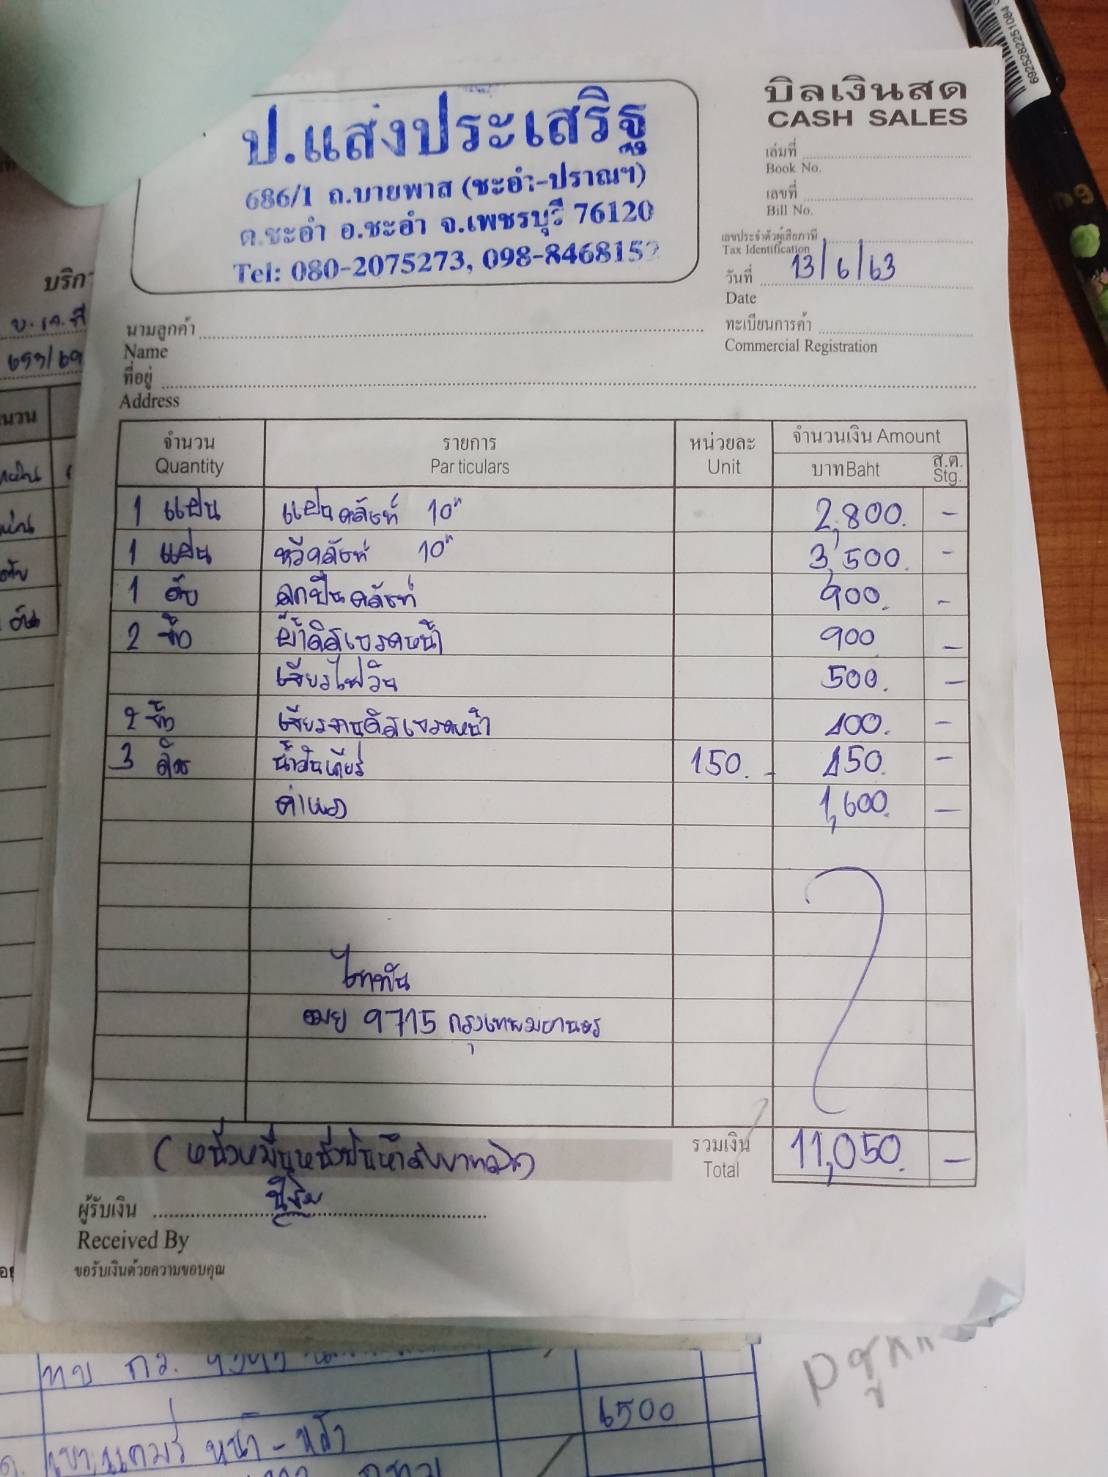 ป.แสงประเสริฐ
686/1 ถ.บายพาส (ชะอำ-ปราณฯ)
ต.ชะอำ อ.ชะอำ จ.เพชรบุรี 76120
Tel: 080-2075273, 098-8468152
บิลเงินสด
CASH SALES
เล่มที่
Book No.
เลขที่
Bill No.
เลขประจำตัวผู้เสียภาษี
Tax Identification
วันที่ 13/6/63
Date
นามลูกค้า
Name
ทะเบียนการค้า
Commercial Registration
ที่อยู่
Address
จำนวน รายการ หน่วยละ จำนวนเงิน Amount
Quantity Particulars Unit บาท Baht ส.ต. Stg.
1 แผ่น แผ่นคลัทช์ 10" 2,800. -
1 แผ่น หวีคลัทช์ 10" 3,500. -
1 ลูกปืนคลัทช์ 900. -
2 ผ้าดิสเบรคหน้า 900 -
เจียรไฟวีล 500. -
2 เจียรจานดิสเบรคหน้า 400. -
3 ลิตร น้ำมันเกียร์ 150. - 450. -
ค่าแรง 1,600. -
ไททัน
9715 กรุงเทพมหานคร
(หนึ่งหมื่นหนึ่งพันห้าสิบบาทถ้วน)
รวมเงิน 11,050. -
Total
ผู้รับเงิน
Received By
ขอรับเงินด้วยความขอบคุณ
6500
692528225108